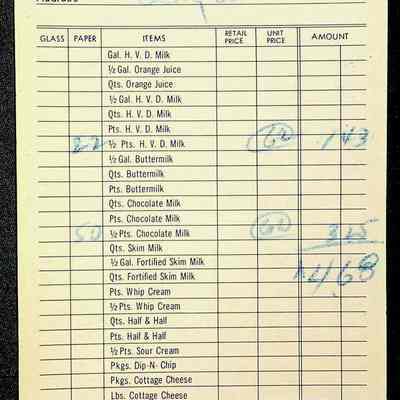 GLASS PAPER ITEMS RETAIL PRICE UNIT PRICE AMOUNT
Gal. H. V. D. Milk
½ Gal. Orange Juice
Qts. Orange Juice
½ Gal. H. V. D. Milk
Qts. H. V. D. Milk
Pts. H. V. D. Milk
22 ½ Pts. H. V. D. Milk 143
½ Gal. Buttermilk
Qts. Buttermilk
Pts. Buttermilk
Qts. Chocolate Milk
Pts. Chocolate Milk
50 ½ Pts. Chocolate Milk 325
Qts. Skim Milk
½ Gal. Fortified Skim Milk 468
Qts. Fortified Skim Milk
Pts. Whip Cream
½ Pts. Whip Cream
Qts. Half & Half
Pts. Half & Half
½ Pts. Sour Cream
Pkgs. Dip-N- Chip
Pkgs. Cottage Cheese
Lbs. Cottage Cheese